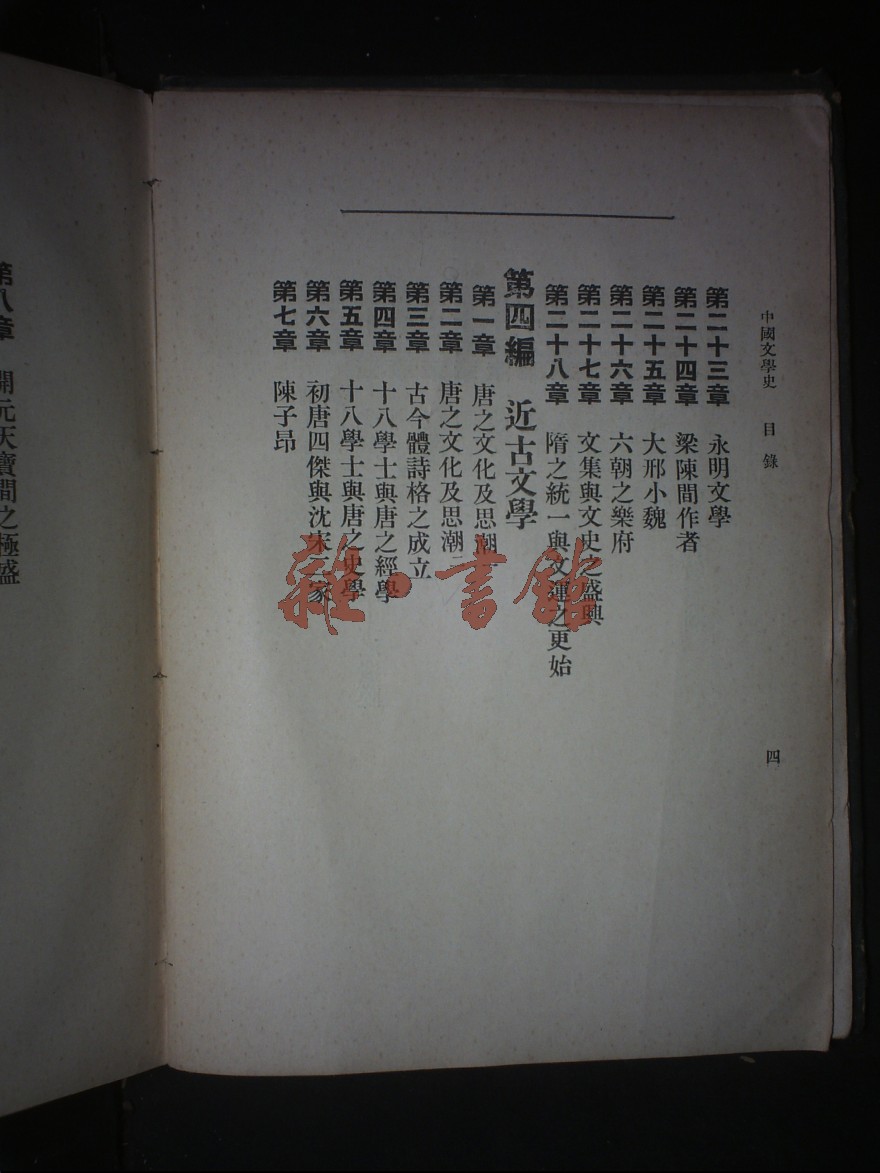 中國文學史 目錄
四
第二十三章 永明文學
第二十四章 梁陳間作者
第二十五章 大邢小魏
第二十六章 六朝之樂府
第二十七章 文集與文史之盛興
第二十八章 隋之統一與文運之更始
第四編 近古文學
第一章 唐之文化及思潮
第二章 唐之文化及思潮二
第三章 古今體詩格之成立
第四章 十八學士與唐之經學
第五章 十八學士與唐之史學
第六章 初唐四傑與沈宋三家
第七章 陳子昂
第八章 開元天寶間之極盛
雜·書館